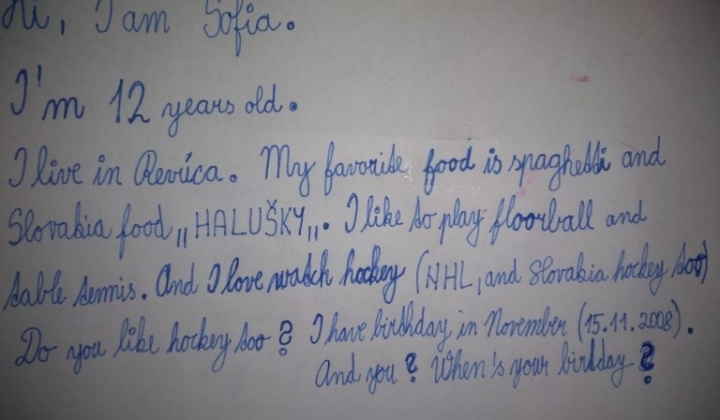 Hi, I am Sofia.
I'm 12 years old.
I live in Revúca. My favorite food is spaghetti and
Slovakia food „HALUŠKY„. I like to play floorball and
table tennis. And I love watch hockey (NHL, and Slovakia hockey too)
Do you like hockey too? I have birthday in November (15.11.2008).
And you? When's your birthday?